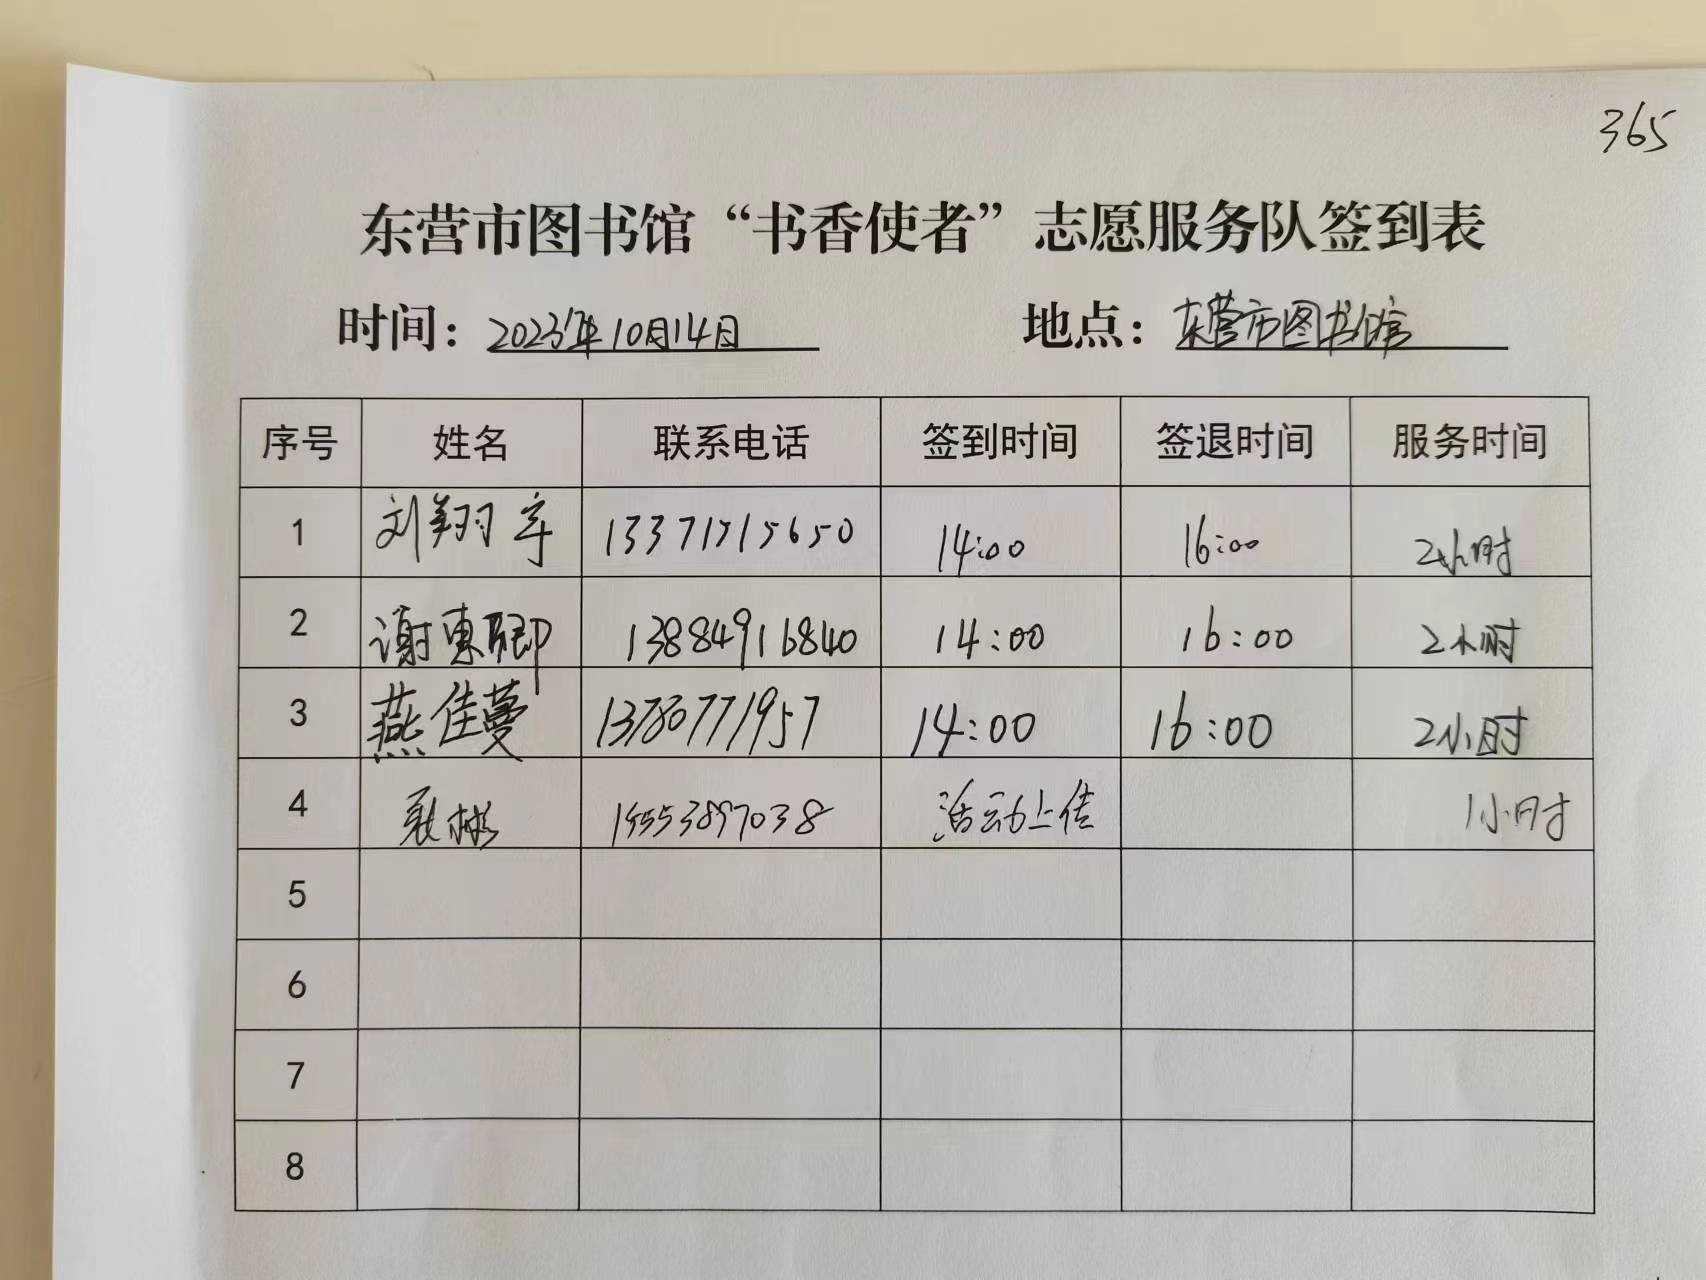 365
东营市图书馆“书香使者”志愿服务队签到表
时间：2023年10月14日 地点：东营市图书馆
序号 姓名 联系电话 签到时间 签退时间 服务时间
1 刘翔宇 13371515650 14:00 16:00 2小时
2 谢惠卿 13884916840 14:00 16:00 2小时
3 燕佳蔓 13780771957 14:00 16:00 2小时
4 彬 15553897038 活动上传 1小时
5
6
7
8